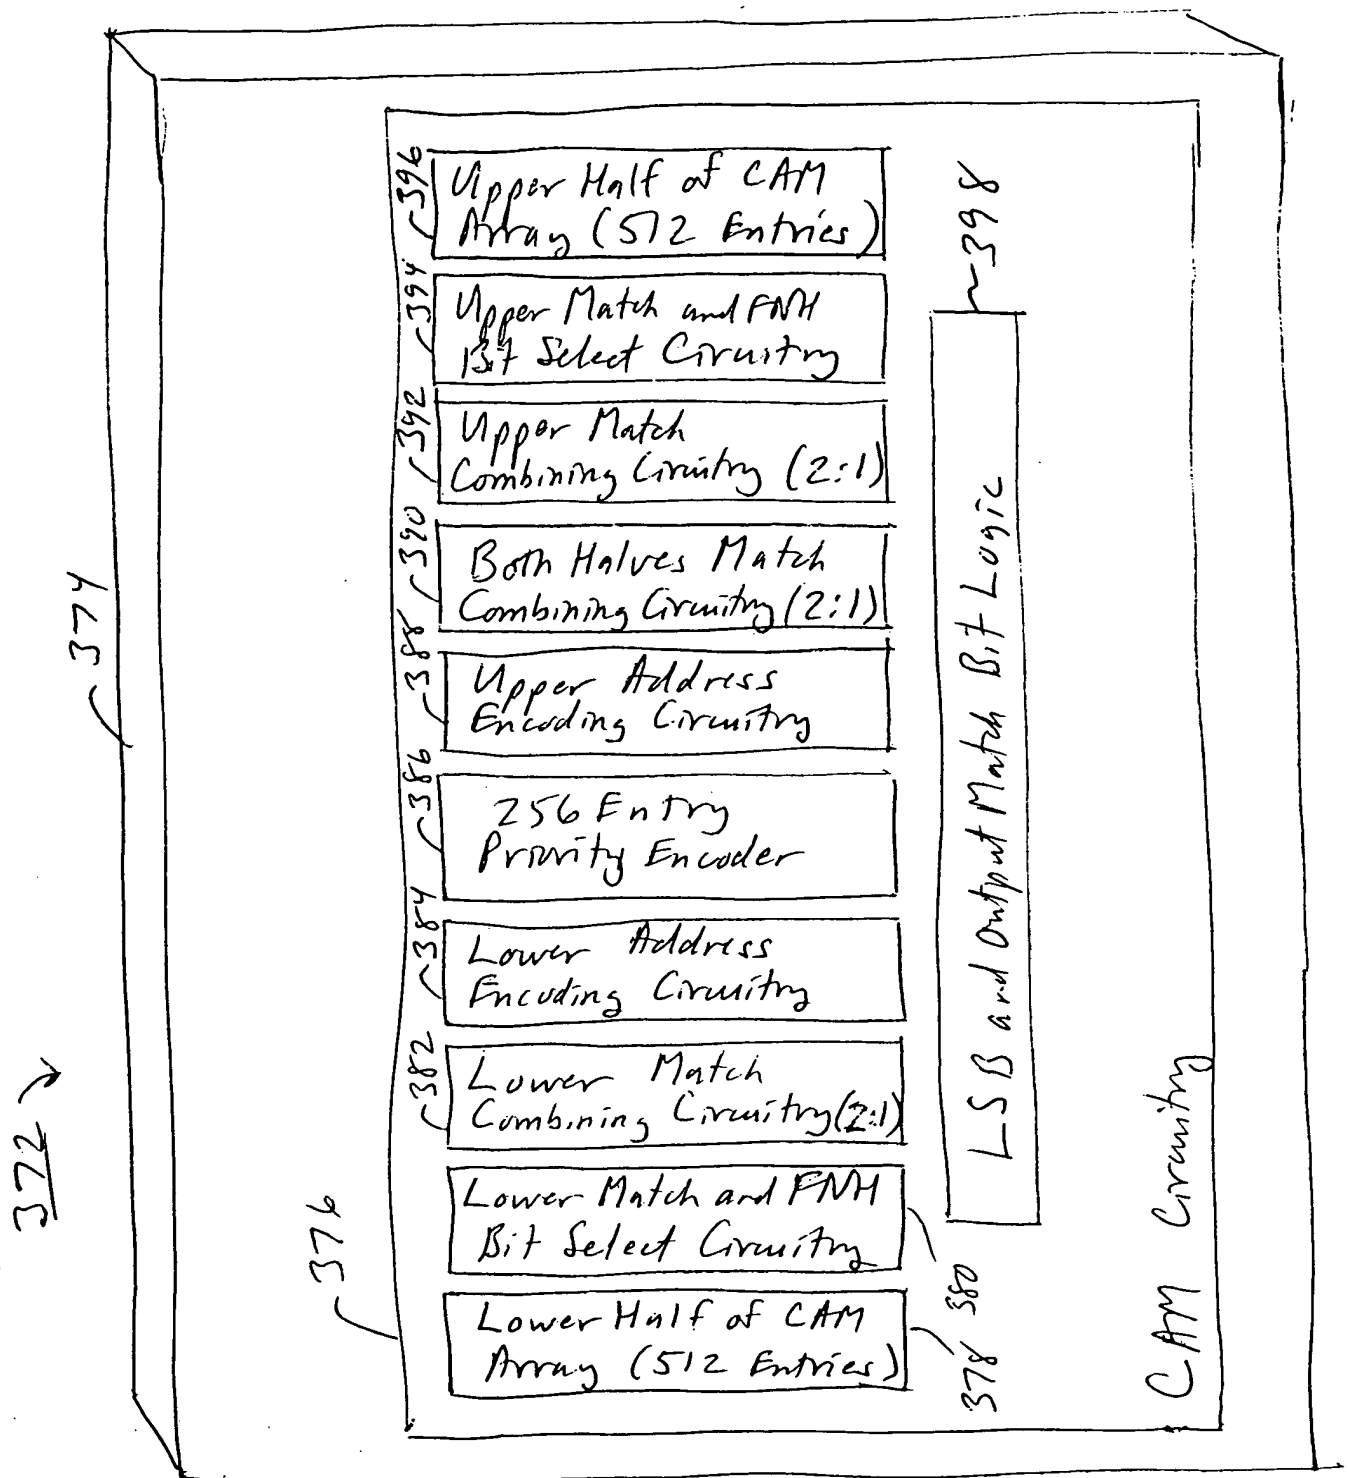 396
Upper Half of CAM
Array (512 Entries)
394
Upper Match and FNH
Bit Select Circuitry
392
Upper Match
Combining Circuitry (2:1)
390
Both Halves Match
Combining Circuitry (2:1)
388
Upper Address
Encoding Circuitry
386
256 Entry
Priority Encoder
384
Lower Address
Encoding Circuitry
382
Lower Match
Combining Circuitry (2:1)
Lower Match and FNH
Bit Select Circuitry
380
Lower Half of CAM
Array (512 Entries)
378
398
LSB and Output Match Bit Logic
CAM Circuitry
374
376
372